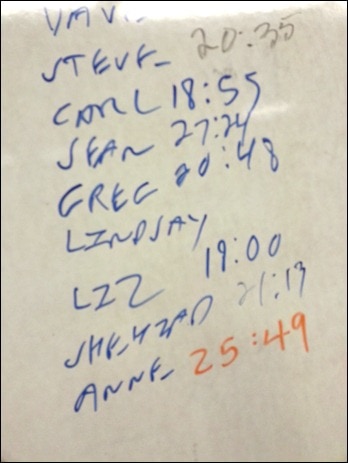 STEVE 20:35
CARL 18:55
SEAN 27:24
GREG 20:48
LINDSAY
LIZ 19:00
SHEHZAD 21:13
ANNE 25:49